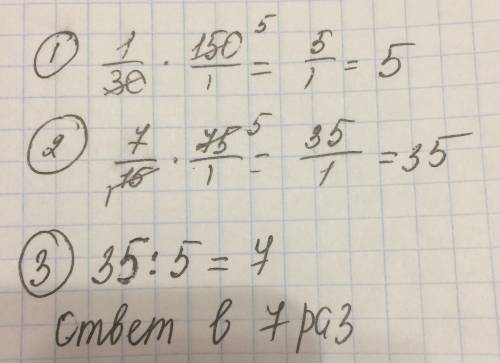 ① 1/30 · 150/1 5 = 5/1 = 5
② 7/15 · 75/1 5 = 35/1 = 35
③ 35 : 5 = 7
Ответ в 7 раз